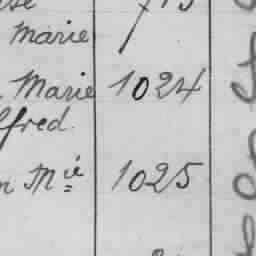 Marie
Marie 1024
lfred.
Mié 1025